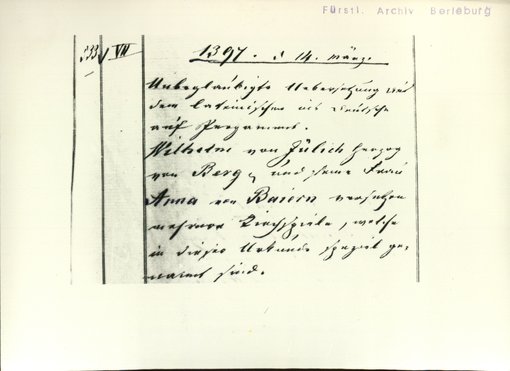 Fürstl. Archiv Berleburg
533 VII
1397. d 14. März.
Unbeglaubigte Uebersetzung aus
dem lateinischen ins Deutsche
auf Pergament.
Wilhelm von Jülich Herzog
von Berg, und seine Frau
Anna von Baiern versetzen
mehrere Kirchspiele, welche
in dieser Urkunde speziel ge-
nannt sind.